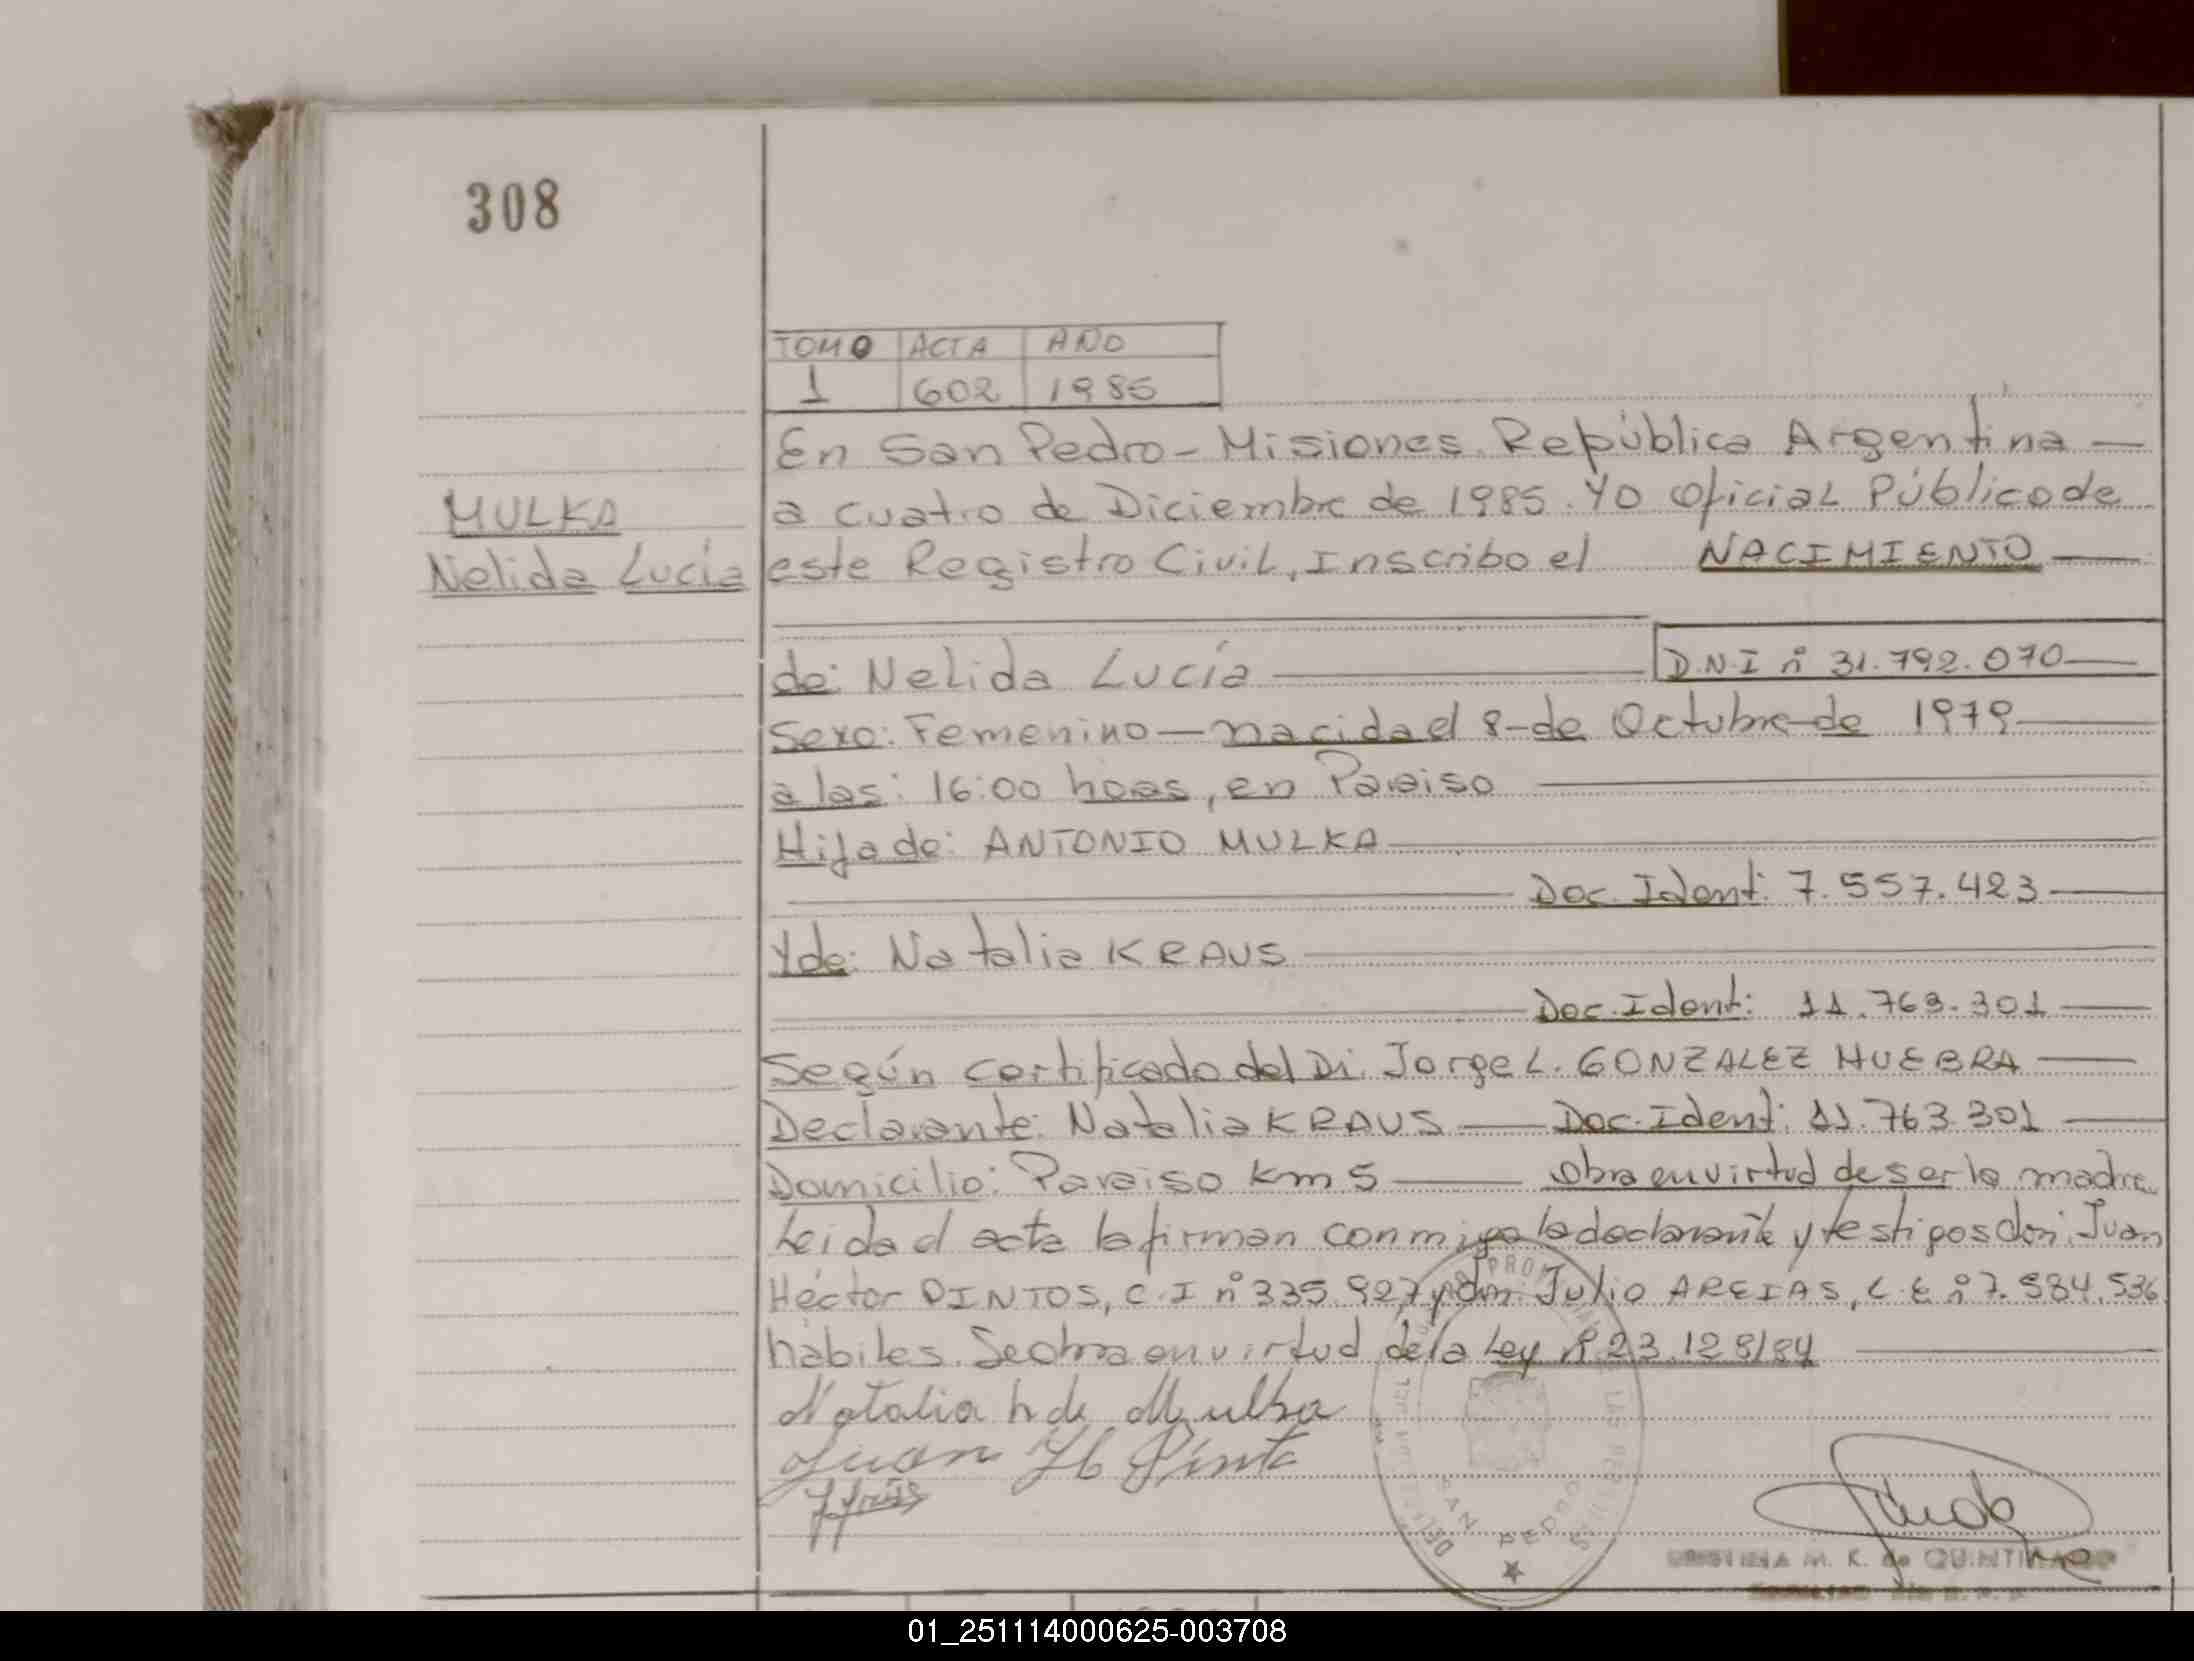 308
TOMO ACTA AÑO
1 602 1985
En San Pedro - Misiones. República Argentina —
MULKA
a cuatro de Diciembre de 1985. Yo oficial Público de
Nelida Lucía
este Registro Civil, Inscribo el NACIMIENTO —
de: Nelida Lucía — D.N.I nº 31.792.070 —
Sexo: Femenino — nacida el 8 - de Octubre - de 1979 —
a las: 16:00 horas, en Paraiso —
Hija de: ANTONIO MULKA —
— Doc. Ident: 7.557.423 —
Y de: Natalia KRAUS —
— Doc. Ident: 11.763.301 —
Según certificado del Dr. Jorge L. GONZALEZ HUEBRA —
Declarante: Natalia KRAUS — Doc. Ident: 11.763.301 —
Domicilio: Paraiso Km 5 — Obra en virtud de ser la madre
Leida el acta la firman conmigo la declarante y testigos don: Juan
Héctor PINTOS, C.I nº 335.927 y don: Julio AREIAS, L.E nº 7.584.536
hábiles. Se obra en virtud de la Ley nº 23.128/84 —
Natalia k de Mulka
Juan H Pinto
SAN PEDRO
CRISTINA M. K. de QUINTINANO
01_251114000625-003708